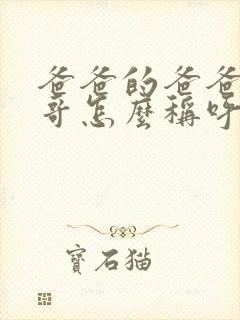 爸爸的爸爸
哥怎麼稱呼
寶石猫